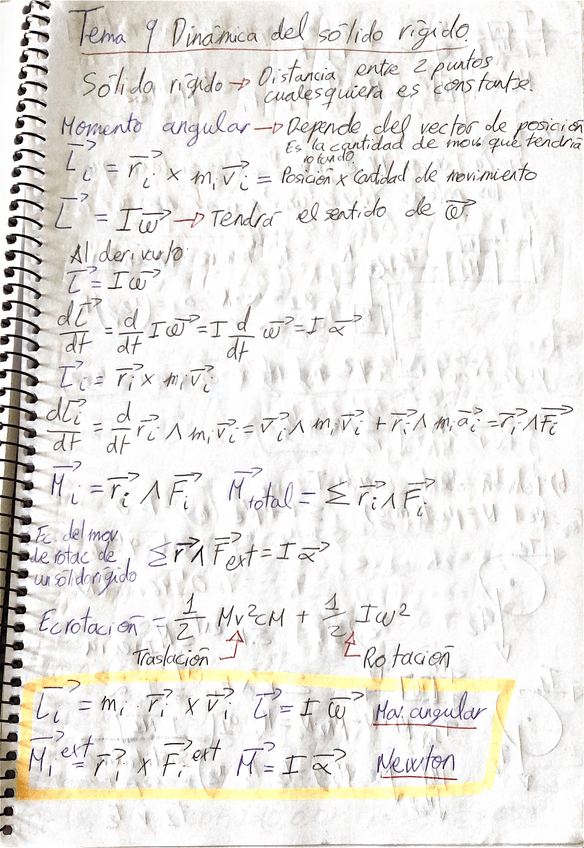 Tema 9 Dinámica del sólido rígido.
Sólido rígido → Distancia entre 2 puntos
cualesquiera es constante.
Momento angular → Depende del vector de posición
Es la cantidad de mov. que tendría
rotando
L⃗ᵢ = r⃗ᵢ × mᵢ v⃗ᵢ = Posición × Cantidad de movimiento
L⃗ = I ω⃗ → Tendrá el sentido de ω⃗
Al derivarlo
L⃗ = I ω⃗
dL⃗/dt = d/dt I ω⃗ = I d/dt ω⃗ = I α⃗
L⃗ᵢ = r⃗ᵢ × mᵢ v⃗ᵢ
dL⃗ᵢ/dt = d/dt r⃗ᵢ ∧ mᵢ v⃗ᵢ = v⃗ᵢ ∧ mᵢ v⃗ᵢ + r⃗ᵢ ∧ mᵢ a⃗ᵢ = r⃗ᵢ ∧ F⃗ᵢ
M⃗ᵢ = r⃗ᵢ ∧ F⃗ᵢ M⃗total = Σ r⃗ᵢ ∧ F⃗ᵢ
Ec. del mov.
de rotac de
un sólido rígido
Σ r⃗ ∧ F⃗ext = I α⃗
Ec rotación = 1/2 Mv²CM + 1/2 Iω²
Traslación Rotación
L⃗ᵢ = mᵢ r⃗ᵢ × v⃗ᵢ L⃗ = I ω⃗ Mo. angular
M⃗ᵢ ext = r⃗ᵢ × F⃗ᵢ ext M⃗ = I α⃗ Newton